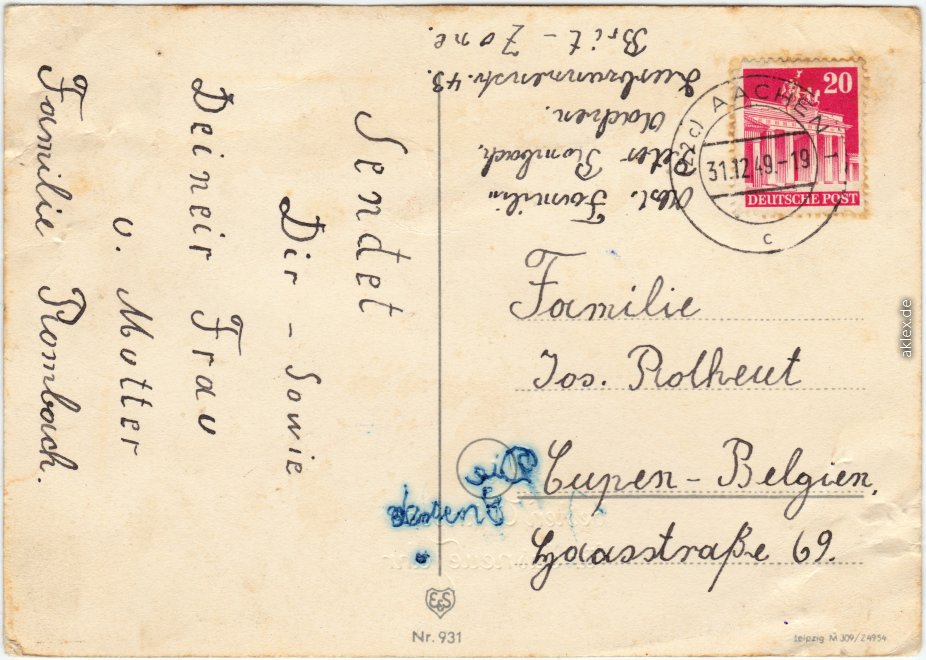 Sendet
Dir - Sowie
Deineir Frau
u. Mutter
Familie Rombach.
Abs. Familie
Peter Rombach,
Aachen.
43.
Brit - Zone.
20
DEUTSCHE POST
(22c) AACHEN
31.12.49.-19
c
Familie
Jos. Rotheut
Eupen - Belgien,
Haasstraße 69.
E&S
Nr. 931
Leipzig M 309/24954
aklex.de